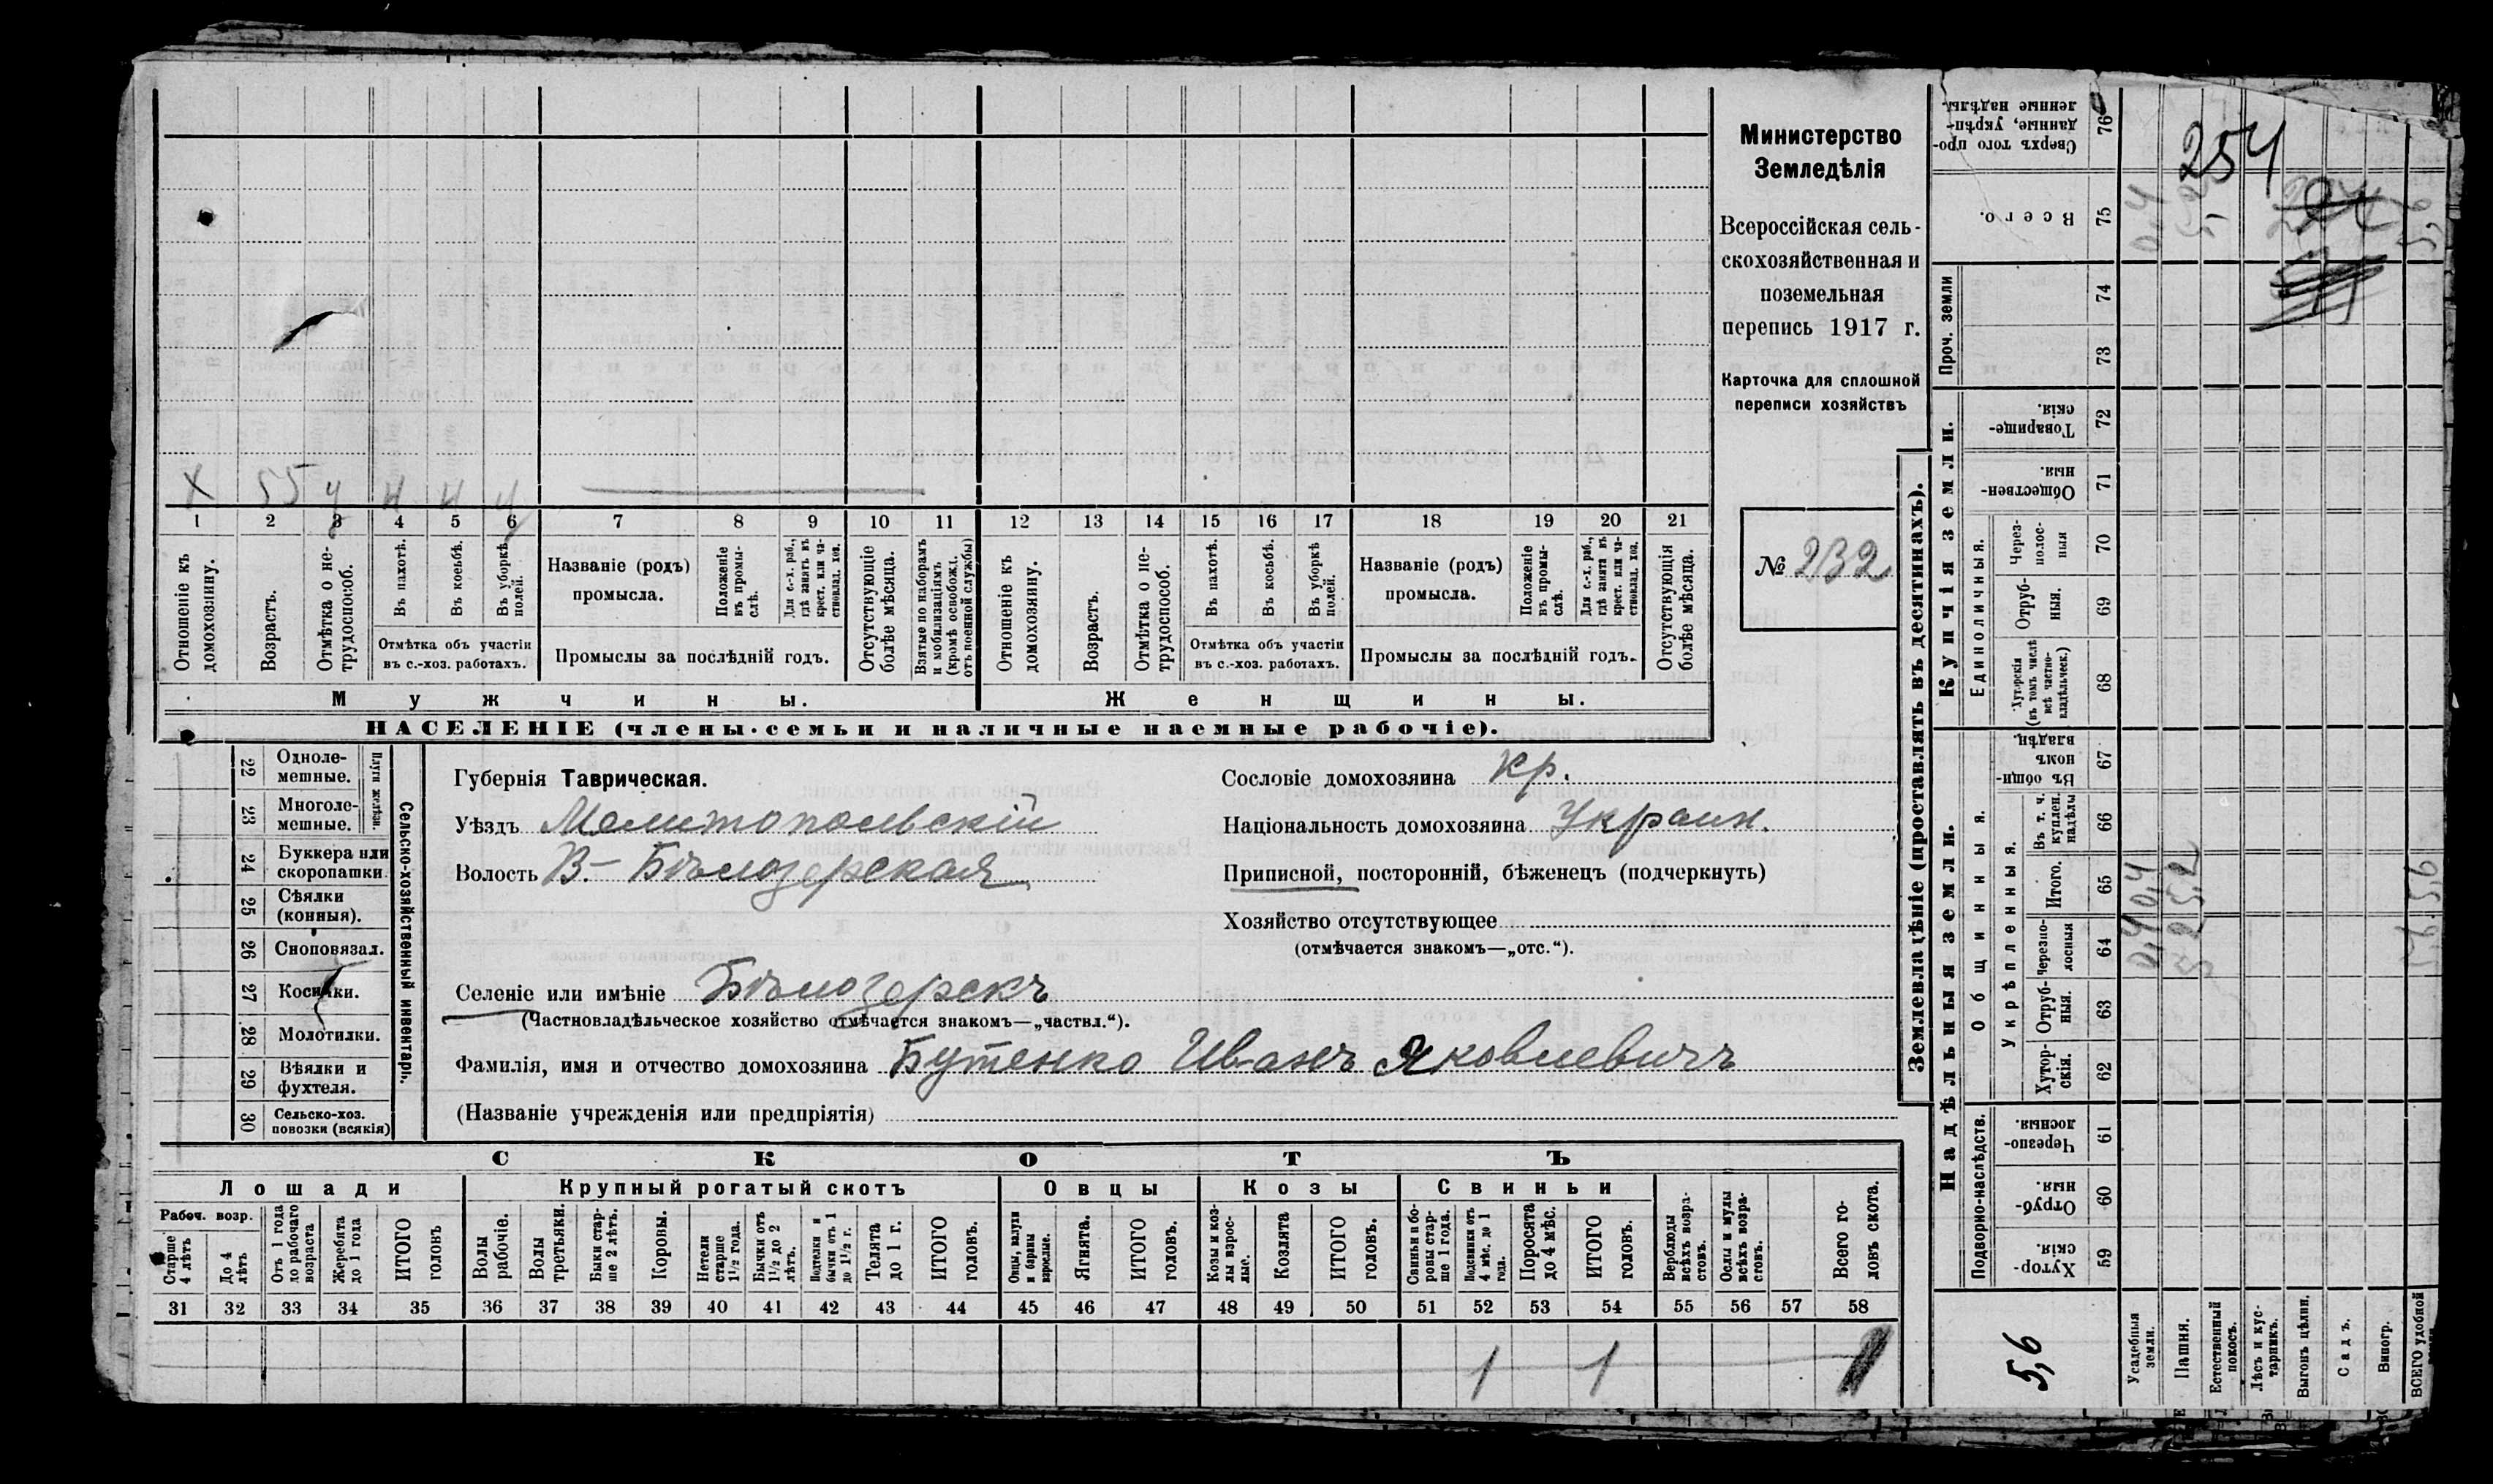 Министерство
Земледѣлія
Всероссійская сель-
скохозяйственная и
поземельная
перепись 1917 г.
Карточка для сплошной
переписи хозяйствъ
№ 232
Х 55
1 2 3 4 5 6 7 8 9 10 11 12 13 14 15 16 17 18 19 20 21
Отношеніе къ домохозяину.
Возрастъ.
Отмѣтка о не-трудоспособ.
Въ пахотѣ.
Въ косьбѣ.
Въ уборкѣ полей.
Отмѣтка объ участіи
въ с.-хоз. работахъ.
Названіе (родъ)
промысла.
Положеніе въ промы-слѣ.
Для с.-х. раб., гдѣ занятъ въ крест. или ча-стновлад. хоз.
Промыслы за послѣдній годъ.
Отсутствующіе болѣе мѣсяца.
Взятые по наборамъ и мобилизаціямъ (кромѣ освобожд. отъ военной службы)
Отношеніе къ домохозяину.
Возрастъ.
Отмѣтка о не-трудоспособ.
Въ пахотѣ.
Въ косьбѣ.
Въ уборкѣ полей.
Отмѣтка объ участіи
въ с.-хоз. работахъ.
Названіе (родъ)
промысла.
Положеніе въ промы-слѣ.
Для с.-х. раб., гдѣ занята въ крест. или ча-стновлад. хоз.
Промыслы за послѣдній годъ.
Отсутствующія болѣе мѣсяца.
Мужчины.
Женщины.
НАСЕЛЕНІЕ (члены семьи и наличные наемные рабочіе).
22 Одноле-мешные.
23 Многоле-мешные.
Плуги желѣзн.
24 Буккера или скоропашки.
25 Сѣялки (конныя).
26 Сноповязал.
27 Косилки.
28 Молотилки.
29 Вѣялки и фухтеля.
30 Сельско-хоз. повозки (всякія)
Сельско-хозяйственный инвентарь.
Губернія Таврическая.
Уѣздъ Мелитопольскій
Волость В.-Бѣлозерская
Сословіе домохозяина кр.
Національность домохозяина Украин.
Приписной, посторонній, бѣженецъ (подчеркнуть)
Хозяйство отсутствующее
(отмѣчается знакомъ—„отс.“).
Селеніе или имѣніе Бѣлозерскъ
(Частновладѣльческое хозяйство отмѣчается знакомъ—„частвл.“).
Фамилія, имя и отчество домохозяина Бутенко Иванъ Яковлевичъ
(Названіе учрежденія или предпріятія)
СКОТЪ
Лошади
Крупный рогатый скотъ
Овцы
Козы
Свиньи
Рабоч. возр.
Старше 4 лѣтъ
До 4 лѣтъ
Отъ 1 года до рабочаго возраста
Жеребята до 1 года
ИТОГО головъ
Волы рабочіе.
Волы третьяки.
Быки стар-ше 2 лѣтъ.
Коровы.
Нетели старше 1½ года.
Бычки отъ 1½ до 2 лѣтъ.
Подтелки и бычки отъ 1 до 1½ г.
Телята до 1 г.
ИТОГО головъ.
Овцы, валухи и бараны взрослые.
Ягнята.
ИТОГО головъ.
Козы и коз-лы взрос-лые.
Козлята
ИТОГО головъ.
Свиньи и бо-ровы стар-ше 1 года.
Подсвинки отъ 4 мѣс. до 1 года.
Поросята до 4 мѣс.
ИТОГО головъ.
Верблюды всѣхъ возра-стовъ.
Ослы и мулы всѣхъ возра-стовъ.
Всего го-ловъ скота.
31 32 33 34 35 36 37 38 39 40 41 42 43 44 45 46 47 48 49 50 51 52 53 54 55 56 57 58
1 1 1
Землевладѣніе (проставлять въ десятинахъ).
Надѣльныя земли.
Купчія земли.
Проч. земли
Подворно-наслѣдств.
Общинныя.
Укрѣпленныя.
Единоличныя.
Хутор-скія 59
Отруб-ныя. 60
Черезпо-лосныя. 61
Хутор-скія. 62
Отруб-ныя. 63
Черезпо-лосныя 64
Итого. 65
Въ т. ч. куплен. надѣлы 66
Въ общин-номъ владѣн. 67
Хуторскія (въ томъ числѣ всѣ частно-владѣльческ.) 68
Отруб-ныя. 69
Через-полос-ныя 70
Обществен-ныя. 71
Товарище-скія. 72
73
74
Всего. 75
Сверхъ того про-данные, укрѣп-ленные надѣлы. 76
Усадебныя земли.
Пашня.
Естественный покосъ.
Лѣсъ и кус-тарникъ.
Выгонъ цѣлин.
Садъ.
Виногр.
ВСЕГО удобной
5,6
0,4 0,4 0,4
5,2 5,2 5,2
5,6 5,6 5,6
254